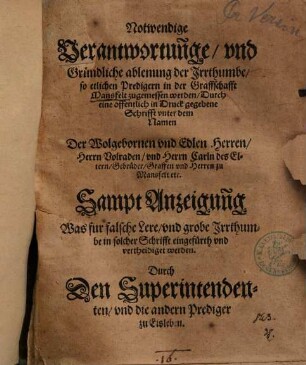 Notwendige
Verantwortunge / vnd
Gründliche ablenung der Irrthumbe /
so etlichen Predigern in der Graffschafft
Mansfelt zugemessen werden / Durch
eine öffentlich in Druck gegebene
Schrifft vnter dem
Namen
Der Wolgebornen vnd Edlen Herren /
Herrn Volraden / vnd Herrn Carln des El-
tern / Gebrüder / Graffen vnd Herren zu
Mansfelt etc.
Sampt Anzeigung
Was für falsche Lere / vnd grobe Irrthum-
be in solcher Schrifft eingefürth vnd
vertheidiget werden.
Durch
Den Superintenden-
ten / vnd die andern Prediger
zu Eisleben.